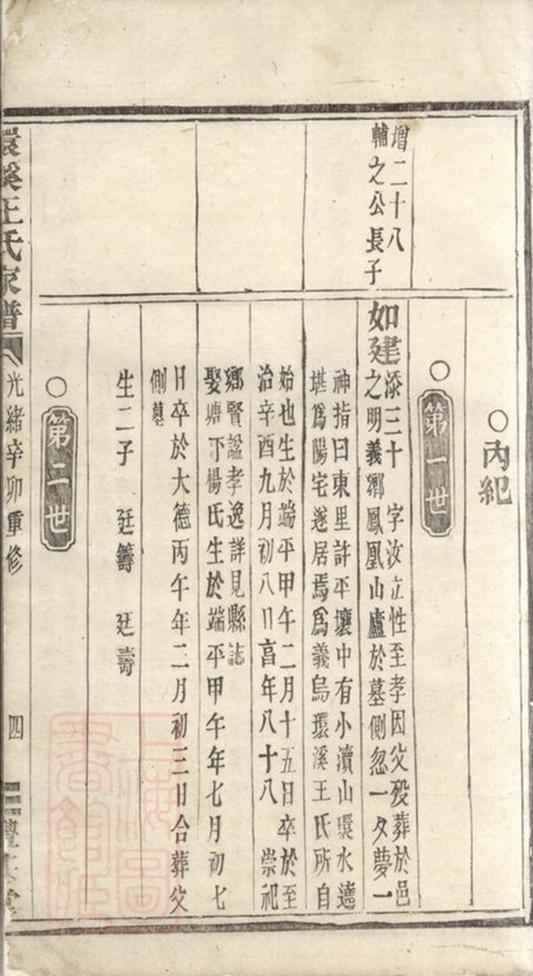 ○內紀
○第一世
增二十八
輔之公長子
如建
添三十 字汝立性至孝因父歿葬於邑
之明義鄉鳳凰山廬於墓側忽一夕夢一
神指曰東里許平壤中有小瀆山環水遶
堪爲陽宅遂居焉爲義烏環溪王氏所自
始也生於端平甲午二月十五日卒於至
治辛酉九月初八日亯年八十八 崇祀
鄉賢諡孝逸詳見縣誌
娶塘下楊氏生於端平甲午年七月初七
日卒於大德丙午年二月初三日合葬父
側墓
生二子 廷籌 廷壽
○第二世
環溪王氏家譜 光緒辛卯重修 四